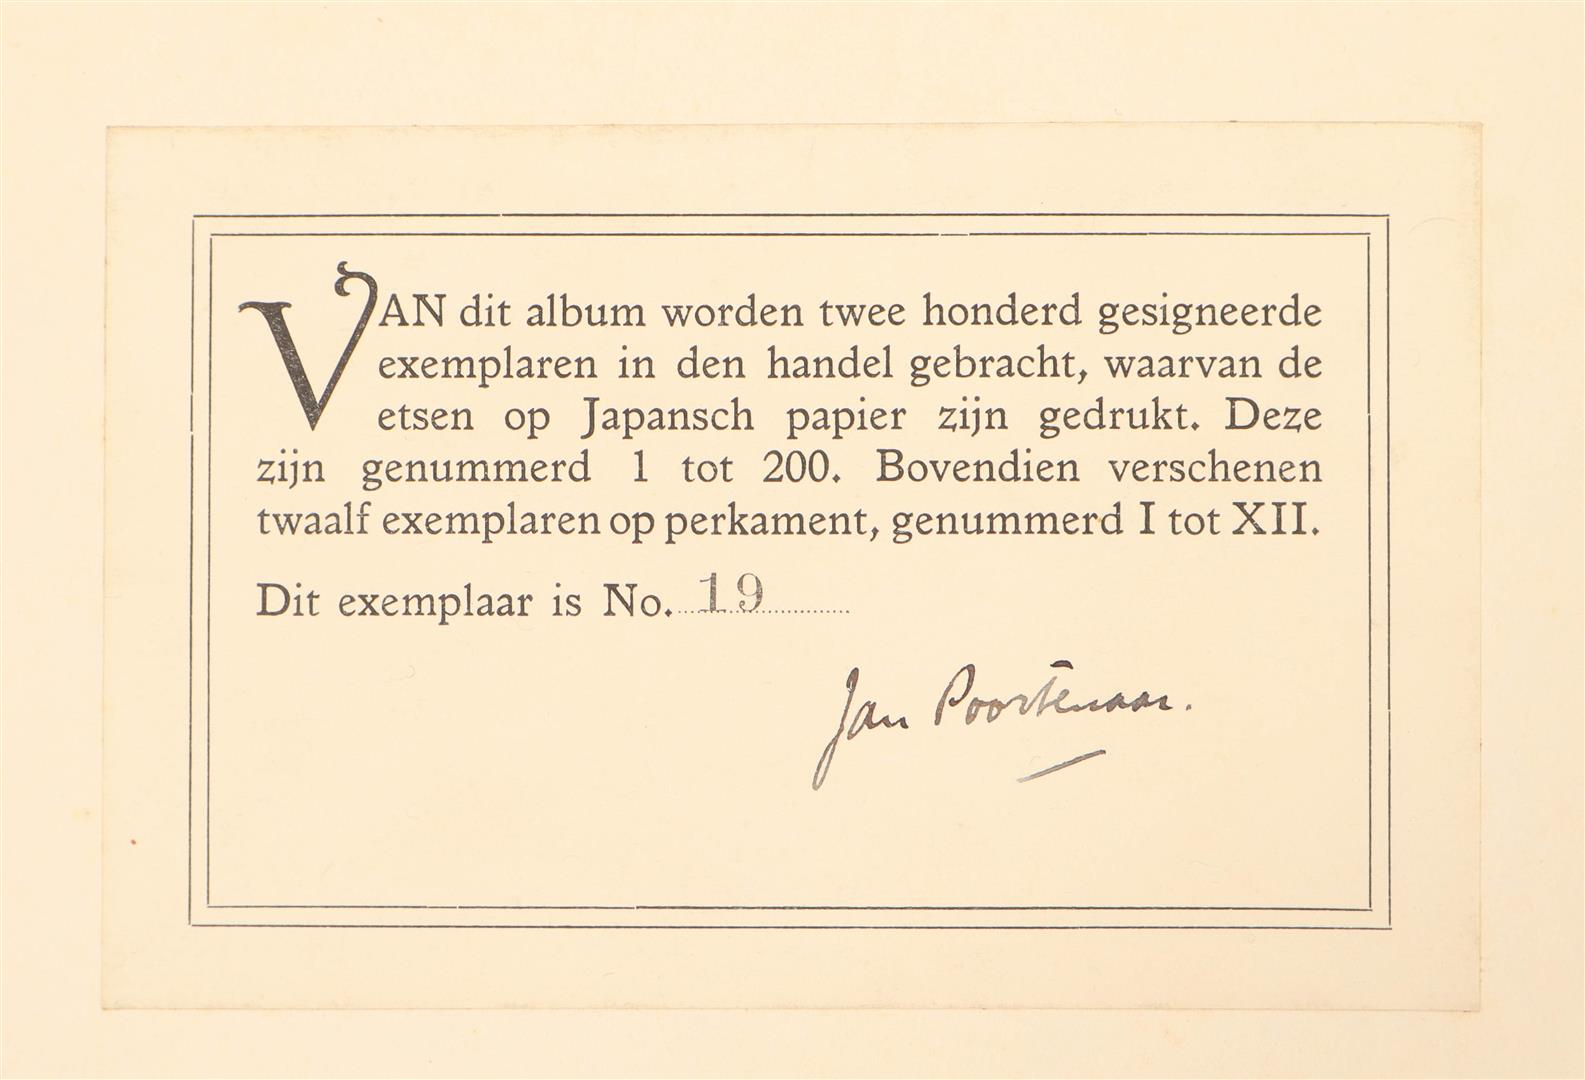 VAN dit album worden twee honderd gesigneerde
exemplaren in den handel gebracht, waarvan de
etsen op Japansch papier zijn gedrukt. Deze
zijn genummerd 1 tot 200. Bovendien verschenen
twaalf exemplaren op perkament, genummerd I tot XII.
Dit exemplaar is No. 19
Jan Poortenaar.